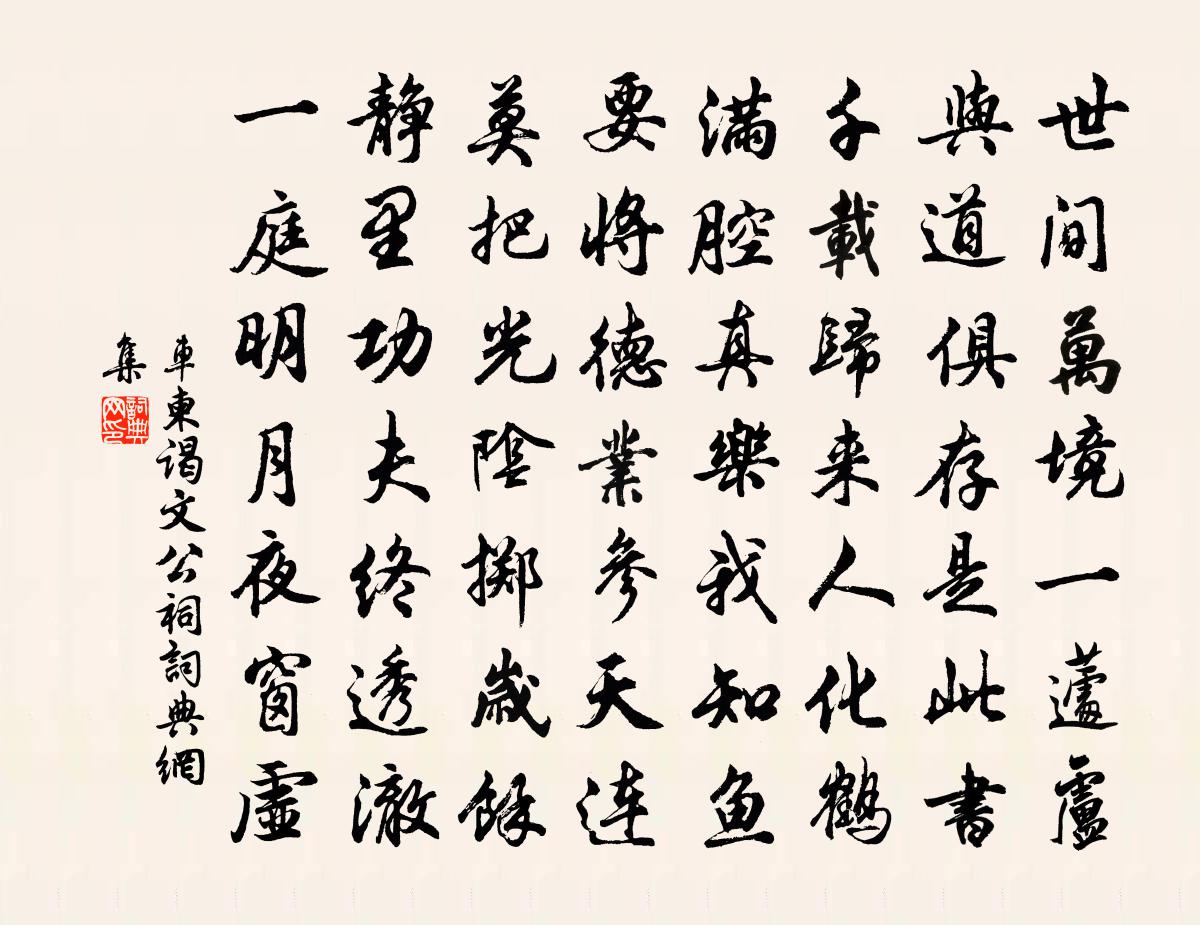 世间萬境一蘧廬
與道俱存是此書
千載歸来人化鶴
滿腔真樂我知鱼
要将德業參天連
莫把光陰擲歲餘
静里功夫终透澈
一庭明月夜窗虛
車東谒文公祠詞典網
集
詞典
网印